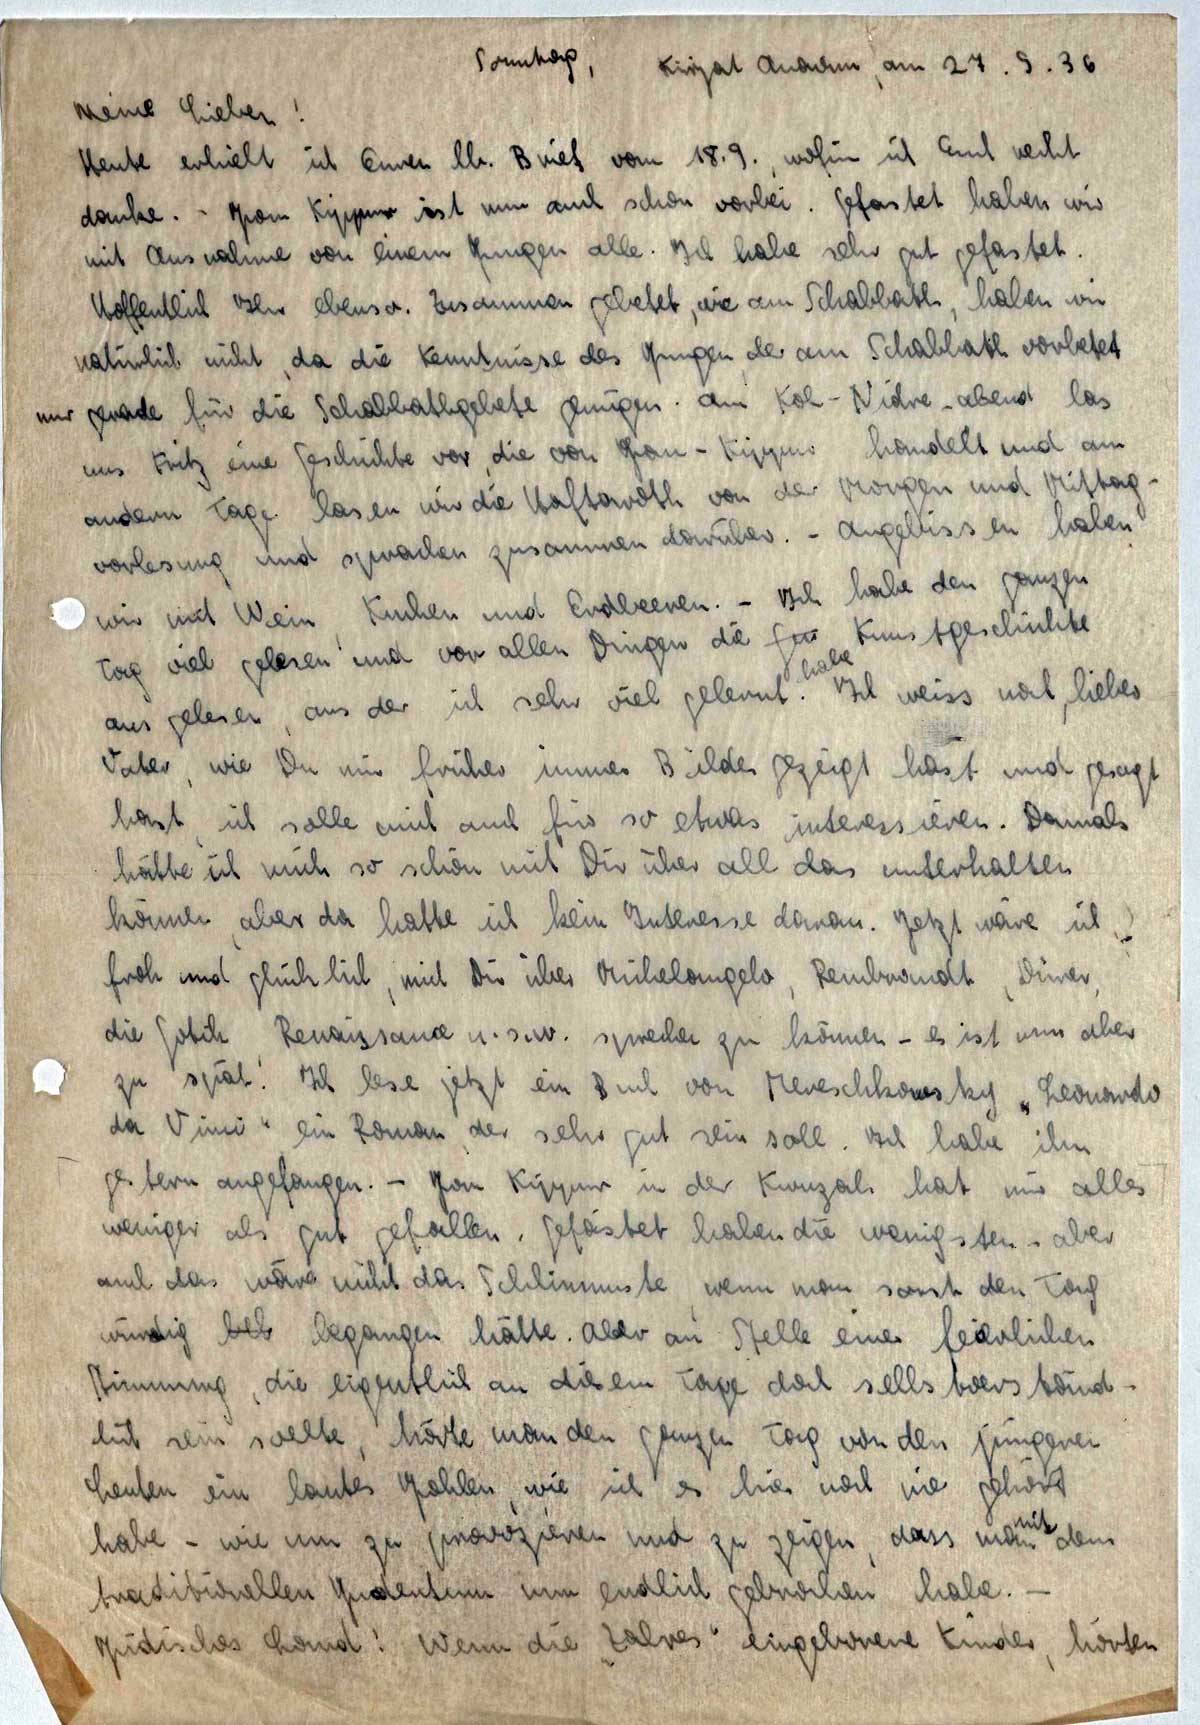 Sonntag, Kirjat Anavim, am 27.9.36
Meine Lieben!
Heute erhielt ich Euren lb. Brief vom 18.9., wofür ich Euch recht
danke. - Jom Kippur ist nun auch schon vorbei. Gefastet haben wir
mit Ausnahme von einem Jungen alle. Ich habe sehr gut gefastet.
Hoffentlich Ihr ebenso. Zusammen gebetet, wie am Schabbath, haben wir
natürlich nicht, da die Kenntnisse des Jungen, der am Schabbath vorbetet
nur gerade für die Schabbathgebete genügen. Am Kol-Nidre-abend las
uns Fritz eine Geschichte vor, die von Jom-Kippur handelt und am
andern Tage lasen wir die Haftaroth von der Morgen und Mittag-
vorlesung und sprachen zusammen darüber. - Angebissen haben
wir mit Wein, Kuchen und Erdbeeren. - Ich habe den ganzen
Tag viel gelesen und vor allen Dingen die Kunstgeschichte
ausgelesen, aus der ich sehr viel gelernt habe. Ich weiss noch, lieber
Vater, wie Du mir früher immer Bilder gezeigt hast und gesagt
hast, ich solle mich auch für so etwas interessieren. Damals
hätte ich mich so schön mit Dir über all das unterhalten
können, aber da hatte ich kein Interesse daran. Jetzt wäre ich
froh und glücklich, mit Dir über Michelangelo, Rembrandt, Dürer,
die Gotik, Renaissance u.s.w. sprechen zu können - es ist nun aber
zu spät! Ich lese jetzt ein Buch von Mereschkowsky „Leonardo
da Vinci“ ein Roman, der sehr gut sein soll. Ich habe ihn
gestern angefangen. - Jom Kippur in der Kwuzah hat mir alles
weniger als gut gefallen. Gefastet haben die wenigsten - aber
auch das wäre nicht das Schlimmste, wenn man sonst den Tag
würdig beb begangen hätte. Aber an Stelle einer feierlichen
Stimmung, die eigentlich an diesem Tage doch selbstverständ-
lich sein sollte, hörte man den ganzen Tag von den jüngeren
Leuten ein lautes Johlen, wie ich es hier noch nie gehört
habe - wie um zu provozieren und zu zeigen, dass man mit dem
traditionellen Judentum nun endlich gebrochen habe. -
Jüdisches Land! Wenn die „Zabres“ eingeborene Kinder, hörten